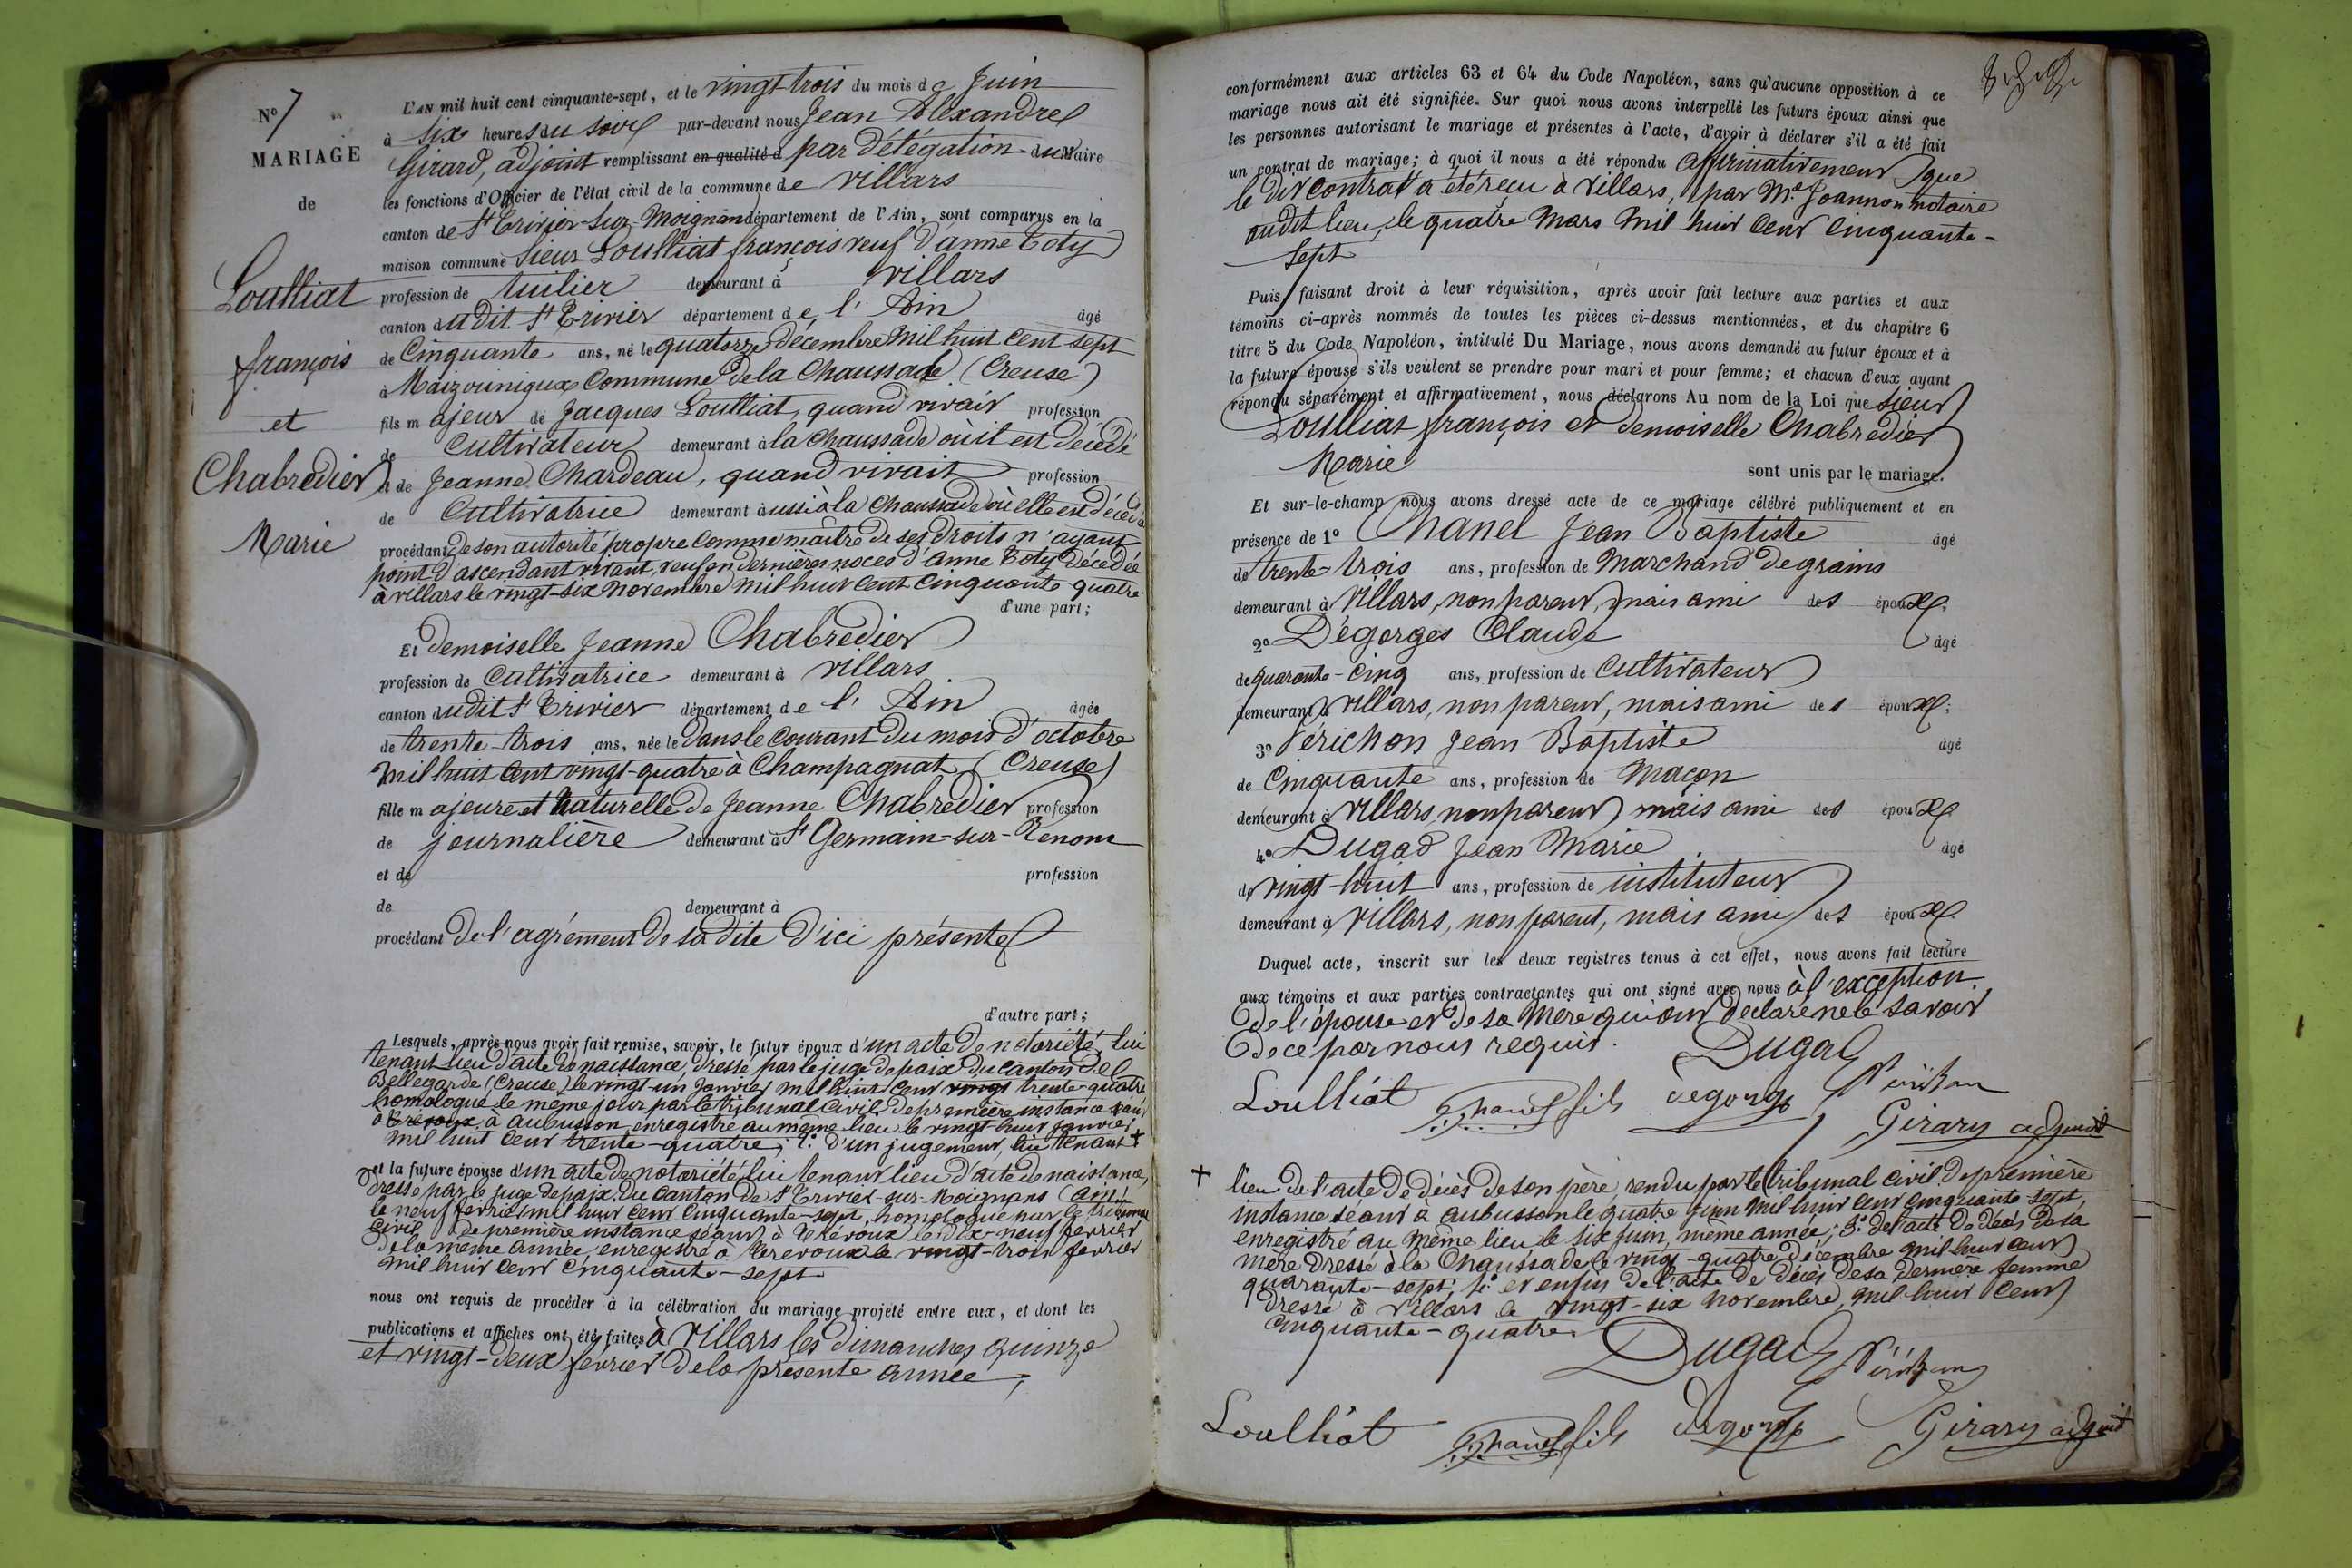 N° 7
MARIAGE
de
Loulliat
françois
et
Chabredier
Marie
L'AN mil huit cent cinquante-sept, et le vingt-trois du mois de Juin
à six heures du soir par-devant nous Jean Alexandre
Girard, adjoint remplissant en qualité d par délégation du Maire
les fonctions d'Officier de l'état civil de la commune de Villars
canton de St Trivier-sur-Moignans département de l'Ain, sont comparus en la
maison commune sieur Loulliat françois veuf d'anne Toty
profession de tuilier demeurant à Villars
canton dudit St Trivier département de l'Ain âgé
de Cinquante ans, né le quatorze Décembre mil huit cent sept
à Maizounigux Commune de la Chaussade (Creuse)
fils majeur de Jacques Loulliat, quand vivait profession
de Cultivateur demeurant à la Chaussade où il est décédé
et de Jeanne Chardeau, quand vivait profession
de Cultivatrice demeurant aussi à la Chaussade où elle est décédée
procédant de son autorité propre comme maître de ses droits n'ayant
point d'ascendant vivant, veuf en dernières noces d'Anne Toty décédée
à villars le vingt-six novembre mil huit cent cinquante-quatre
d'une part;
Et demoiselle Jeanne Chabredier
profession de Cultivatrice demeurant à Villars
canton dudit St Trivier département de l'Ain âgée
de trente-trois ans, née le Dans le courant du mois d'octobre
mil huit cent vingt-quatre à Champagnat (Creuse)
fille majeure et naturelle de Jeanne Chabredier profession
de journalière demeurant à St Germain-sur-Renom
et de profession
de demeurant à
procédant de l'agrément de sa dite d'ici présente
d'autre part;
Lesquels, après nous avoir fait remise, savoir, le futur époux d'un acte de notoriété, lui
tenant lieu d'acte de naissance, dressé par le juge de paix du canton de
Bellegarde (Creuse) le vingt-un Janvier mil huit cent vingt trente-quatre
homologué le même jour par le tribunal civil de première instance séant
à Trévoux, à aubusson, enregistré au même lieu le vingt-huit janvier
mil huit cent trente-quatre; 2° d'un jugement, lui tenant +
et la future épouse d'un acte de notoriété lui tenant lieu d'acte de naissance,
dressé par le juge de paix du canton de St Trivier-sur-Moignans (Ain)
le neuf février mil huit cent cinquante-sept, homologué par le tribunal
civil de première instance séant à Trévoux le dix-neuf février
de la même année, enregistré à Trévoux le vingt-trois février
mil huit cent cinquante-sept
nous ont requis de procéder à la célébration du mariage projeté entre eux, et dont les
publications et affiches ont été faites à Villars les dimanches quinze
et vingt-deux février de la présente année,
conformément aux articles 63 et 64 du Code Napoléon, sans qu'aucune opposition à ce
mariage nous ait été signifiée. Sur quoi nous avons interpellé les futurs époux ainsi que
les personnes autorisant le mariage et présentes à l'acte, d'avoir à déclarer s'il a été fait
un contrat de mariage; à quoi il nous a été répondu affirmativement que
le dit contrat a été reçu à Villars, par Me Joannon notaire
audit lieu, le quatre Mars mil huit cent cinquante-
sept
Puis, faisant droit à leur réquisition, après avoir fait lecture aux parties et aux
témoins ci-après nommés de toutes les pièces ci-dessus mentionnées, et du chapitre 6
titre 5 du Code Napoléon, intitulé Du Mariage, nous avons demandé au futur époux et à
la future épouse s'ils veulent se prendre pour mari et pour femme; et chacun d'eux ayant
répondu séparément et affirmativement, nous déclarons Au nom de la Loi que sieur
Loulliat françois et demoiselle Chabredier
Marie sont unis par le mariage.
Et sur-le-champ nous avons dressé acte de ce mariage célébré publiquement et en
présence de 1° Chanel Jean Baptiste âgé
de trente-trois ans, profession de Marchand de grains
demeurant à Villars, non parent, mais ami des époux;
2° Dégorges Claude âgé
de quarante-cinq ans, profession de Cultivateur
demeurant à Villars, non parent, mais ami des époux;
3° Périchon Jean Baptiste âgé
de Cinquante ans, profession de Maçon
demeurant à Villars, non parent, mais ami des époux
4° Dugad Jean Marie âgé
de vingt-huit ans, profession de instituteur
demeurant à Villars, non parent, mais ami des époux.
Duquel acte, inscrit sur les deux registres tenus à cet effet, nous avons fait lecture
aux témoins et aux parties contractantes qui ont signé avec nous à l'exception
de l'épouse et de sa mère qui ont déclaré ne le savoir
de ce par nous requis.
Dugad
Loulliat Chanel fils degorge Périchon
Girard adjoint
+ lieu de l'acte de décès de son père, rendu par le tribunal civil de première
instance séant à aubusson le quatre juin mil huit cent cinquante-sept,
enregistré au même lieu le six juin, même année; 3° de l'acte de décès de sa
mère dressé à la Chaussade le vingt-quatre décembre mil huit cent
quarante-sept; 4° et enfin de l'acte de décès de sa dernière femme
dressé à Villars le vingt-six novembre, mil huit cent
cinquante-quatre.
Dugad Périchon
Loulliat Chanel fils degorge Girard adjoint